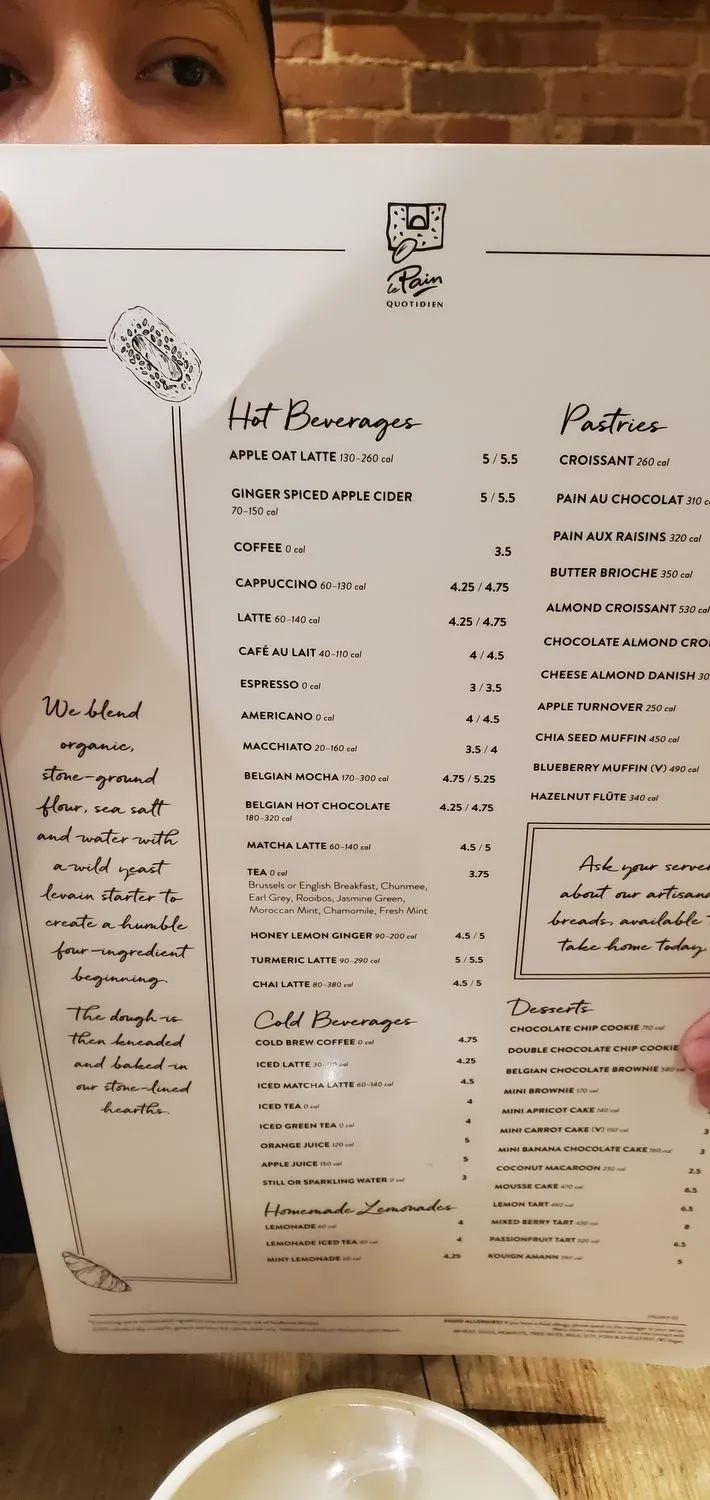 le Pain
QUOTIDIEN
We blend
organic,
stone-ground
flour, sea salt
and water with
a wild yeast
levain starter to
create a humble
four-ingredient
beginning.
The dough is
then kneaded
and baked in
our stone-lined
hearths.
Hot Beverages
APPLE OAT LATTE 130-260 cal 5 / 5.5
GINGER SPICED APPLE CIDER 5 / 5.5
70-150 cal
COFFEE 0 cal 3.5
CAPPUCCINO 60-130 cal 4.25 / 4.75
LATTE 60-140 cal 4.25 / 4.75
CAFÉ AU LAIT 40-110 cal 4 / 4.5
ESPRESSO 0 cal 3 / 3.5
AMERICANO 0 cal 4 / 4.5
MACCHIATO 20-160 cal 3.5 / 4
BELGIAN MOCHA 170-300 cal 4.75 / 5.25
BELGIAN HOT CHOCOLATE 4.25 / 4.75
180-320 cal
MATCHA LATTE 60-140 cal 4.5 / 5
TEA 0 cal 3.75
Brussels or English Breakfast, Chunmee,
Earl Grey, Rooibos, Jasmine Green,
Moroccan Mint, Chamomile, Fresh Mint
HONEY LEMON GINGER 90-200 cal 4.5 / 5
TURMERIC LATTE 90-290 cal 5 / 5.5
CHAI LATTE 80-380 cal 4.5 / 5
Cold Beverages
COLD BREW COFFEE 0 cal 4.75
ICED LATTE 4.25
ICED MATCHA LATTE 60-140 cal 4.5
ICED TEA 0 cal 4
ICED GREEN TEA 0 cal 4
ORANGE JUICE 120 cal 5
APPLE JUICE 150 cal 5
STILL OR SPARKLING WATER 0 cal 3
Homemade Lemonades
LEMONADE 4
LEMONADE ICED TEA 4
MINT LEMONADE 4.25
Pastries
CROISSANT 260 cal
PAIN AU CHOCOLAT 310
PAIN AUX RAISINS 320 cal
BUTTER BRIOCHE 350 cal
ALMOND CROISSANT 530 cal
CHOCOLATE ALMOND CRO
CHEESE ALMOND DANISH 30
APPLE TURNOVER 250 cal
CHIA SEED MUFFIN 450 cal
BLUEBERRY MUFFIN (V) 490 cal
HAZELNUT FLÛTE 340 cal
Ask your server
about our artisan
breads, available
take home today
Desserts
CHOCOLATE CHIP COOKIE 710 cal
DOUBLE CHOCOLATE CHIP COOKIE
BELGIAN CHOCOLATE BROWNIE
MINI BROWNIE 170 cal
MINI APRICOT CAKE
MINI CARROT CAKE (V) 3
MINI BANANA CHOCOLATE CAKE 3
COCONUT MACAROON 2.5
MOUSSE CAKE 6.5
LEMON TART 6.5
MIXED BERRY TART 8
PASSIONFRUIT TART 6.5
KOUIGN AMANN 5